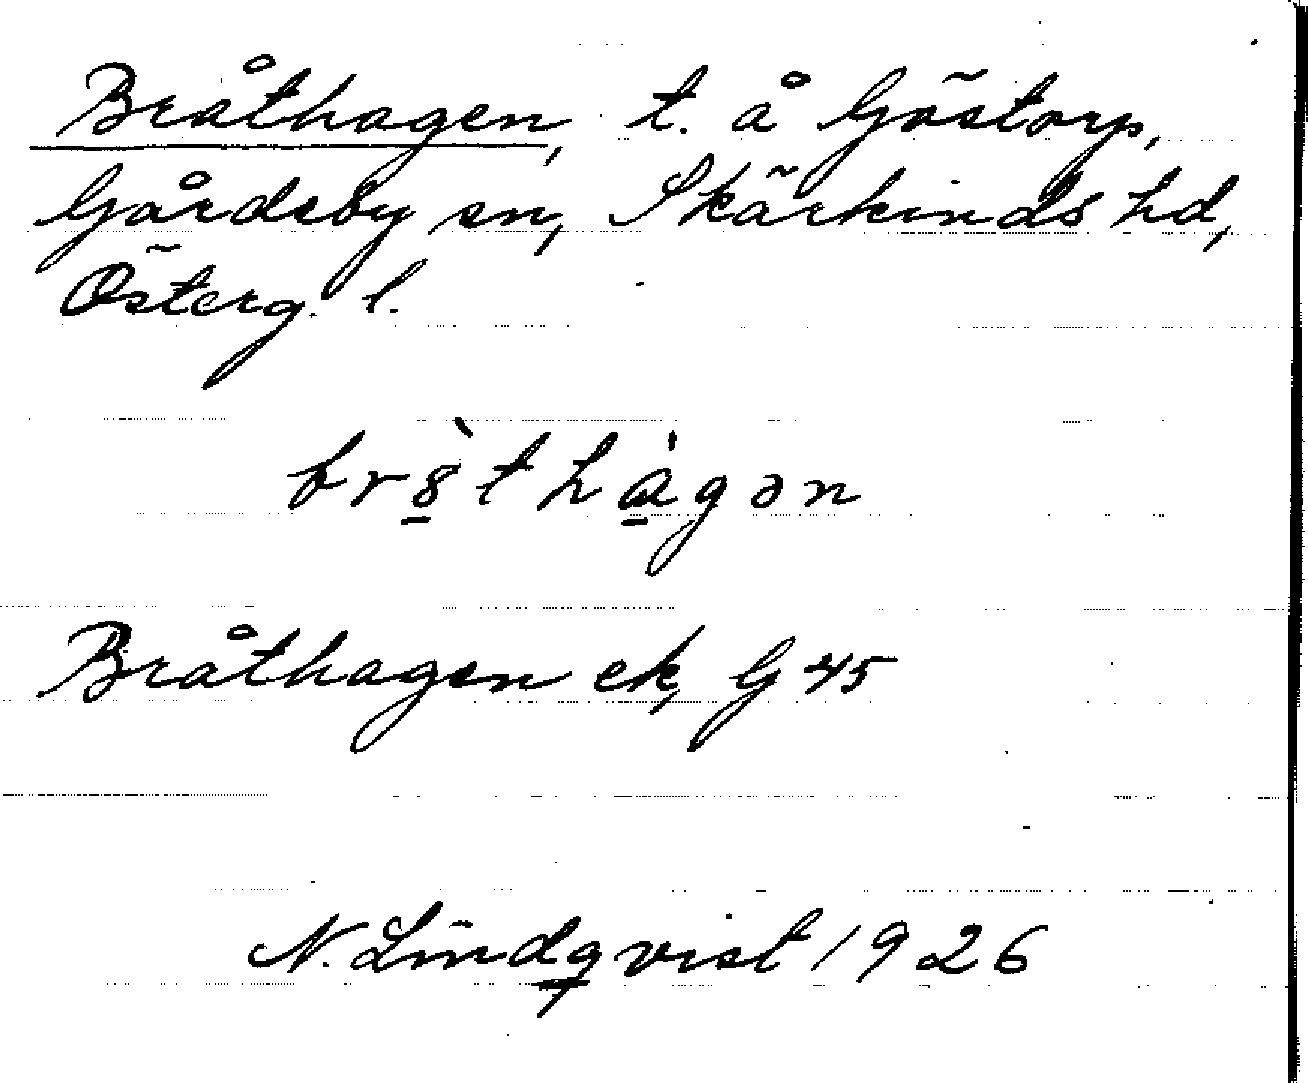 Bråthagen, t. å Göstorp,
Gårdeby sn, Skärkinds hd,
Österg. l.
br8̠̀th<u>à</u>gən
Bråthagen ek, G 45
N. Lindqvist 1926